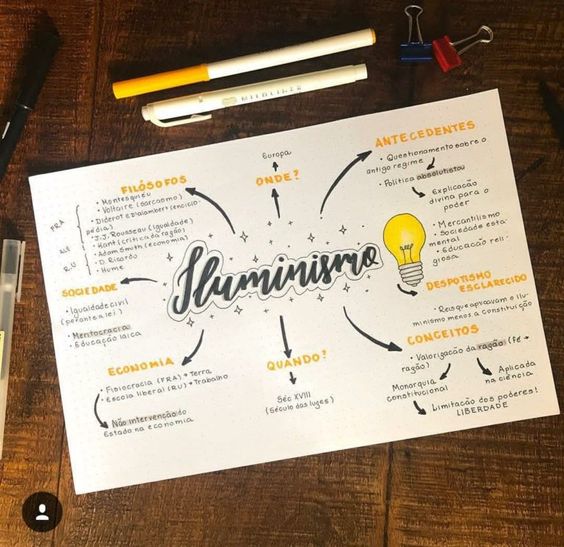 FILÓSOFOS
• Montesquieu
• Voltaire (sarcasmo)
Diderot e D'alambert (enciclo-
pédia)
• J.J. Rousseau (igualdade)
• Kant (crítica da razão)
• Adam Smith (economia)
• D. Ricardo
• Hume
FRA
RU
Europa
ONDE?
ANTECEDENTES
• Questionamento sobre o
antigo regime
• Política absolutista
Explicação
divina para o
poder
• Mercantilismo
• Sociedade esta-
mental
• Educação reli-
giosa
Iluminismo
SOCIEDADE
• Igualdade civil
(perante a lei)
• Meritocracia
• Educação laica
DESPOTISMO
ESCLARECIDO
• Reis que apoiavam o ilu-
minismo menos a constituição
ECONOMIA
• Fisiocracia (FRA) → Terra
• Escola liberal (RU) → Trabalho
Não intervenção do
Estado na economia
QUANDO?
Séc XVIII
(Século das luzes)
CONCEITOS
• Valorização da razão (Fé →
razão)
Monarquia
constitucional
Aplicada
na ciência
Limitação dos poderes!
LIBERDADE